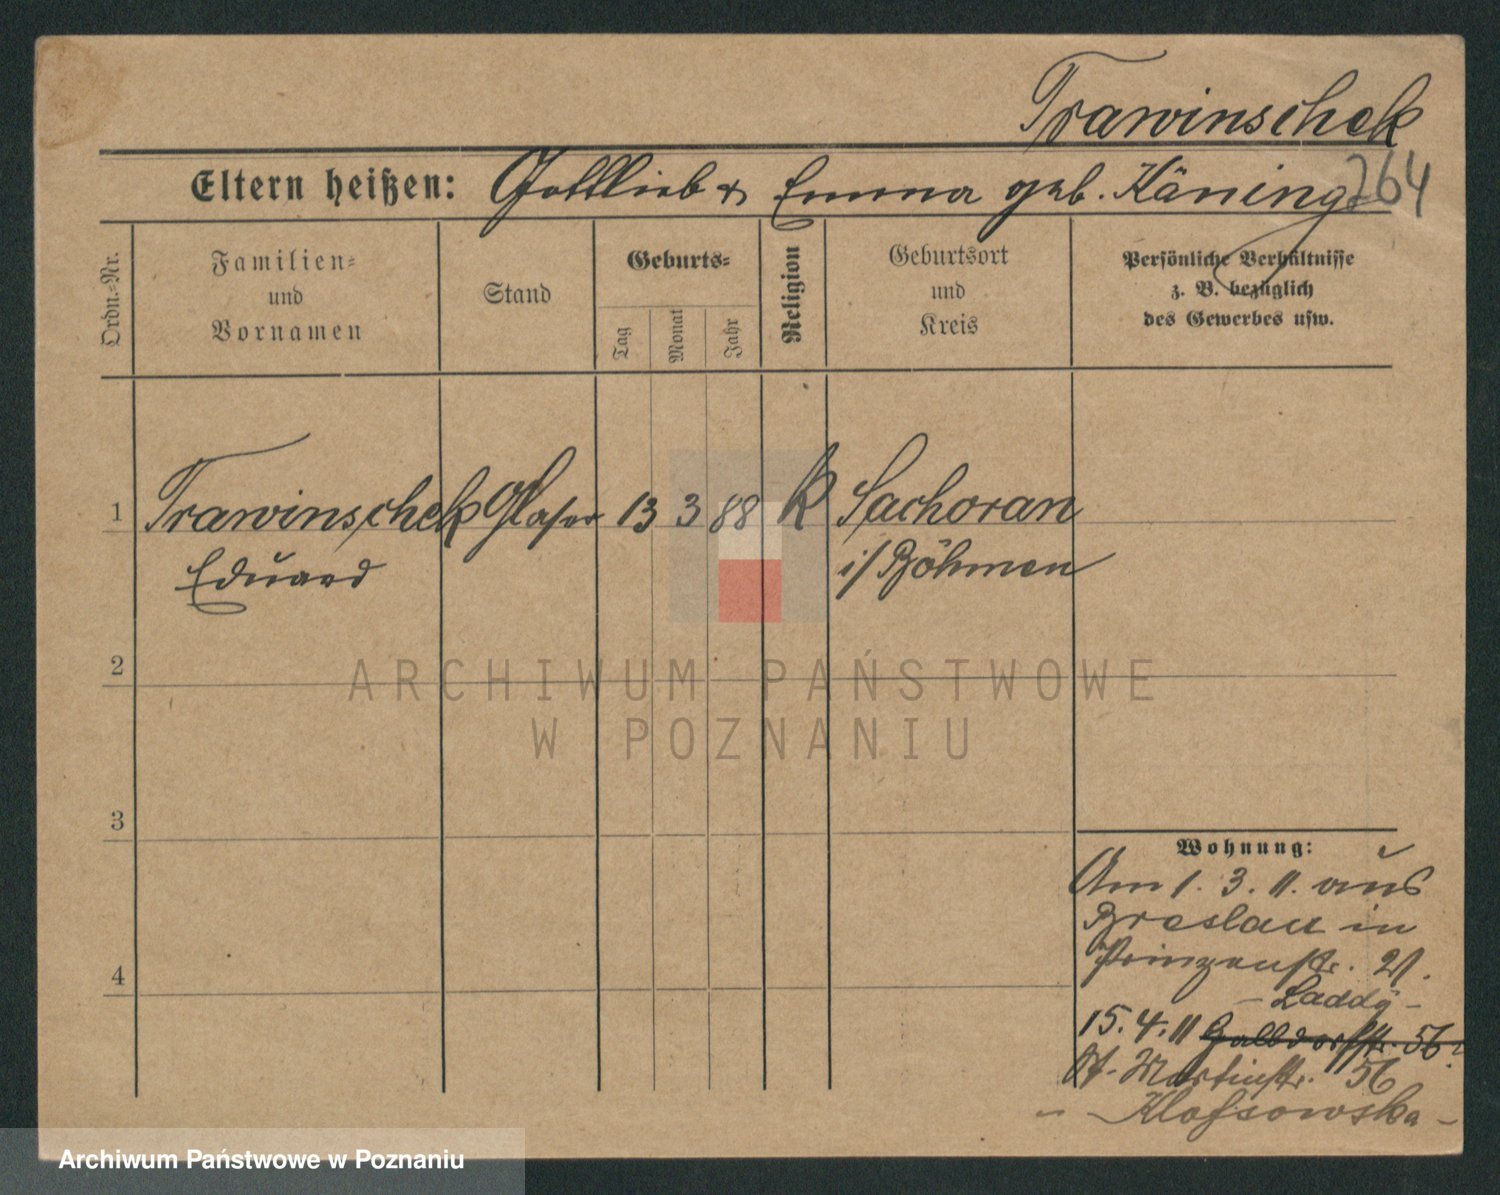 Trawinschek
264
Eltern heißen: Gottlieb & Emma geb. Käning
Ordn.=Nr.
Familien=
und
Vornamen
Stand
Geburts=
Tag
Monat
Jahr
Religion
Geburtsort
und
Kreis
Persönliche Verhältnisse
z. B. bezüglich
des Gewerbes usw.
1 Trawinschek Glaser 13 3 88 K Sachoran
Eduard i/Böhmen
2
3
4
Wohnung:
Am 1. 3. 11. aus
Breslau in
Prinzenstr. 21.
- Laddy -
15. 4. 11 56
St. Martinstr. 56
- Klossowska -
ARCHIWUM PAŃSTWOWE
W POZNANIU
Archiwum Państwowe w Poznaniu